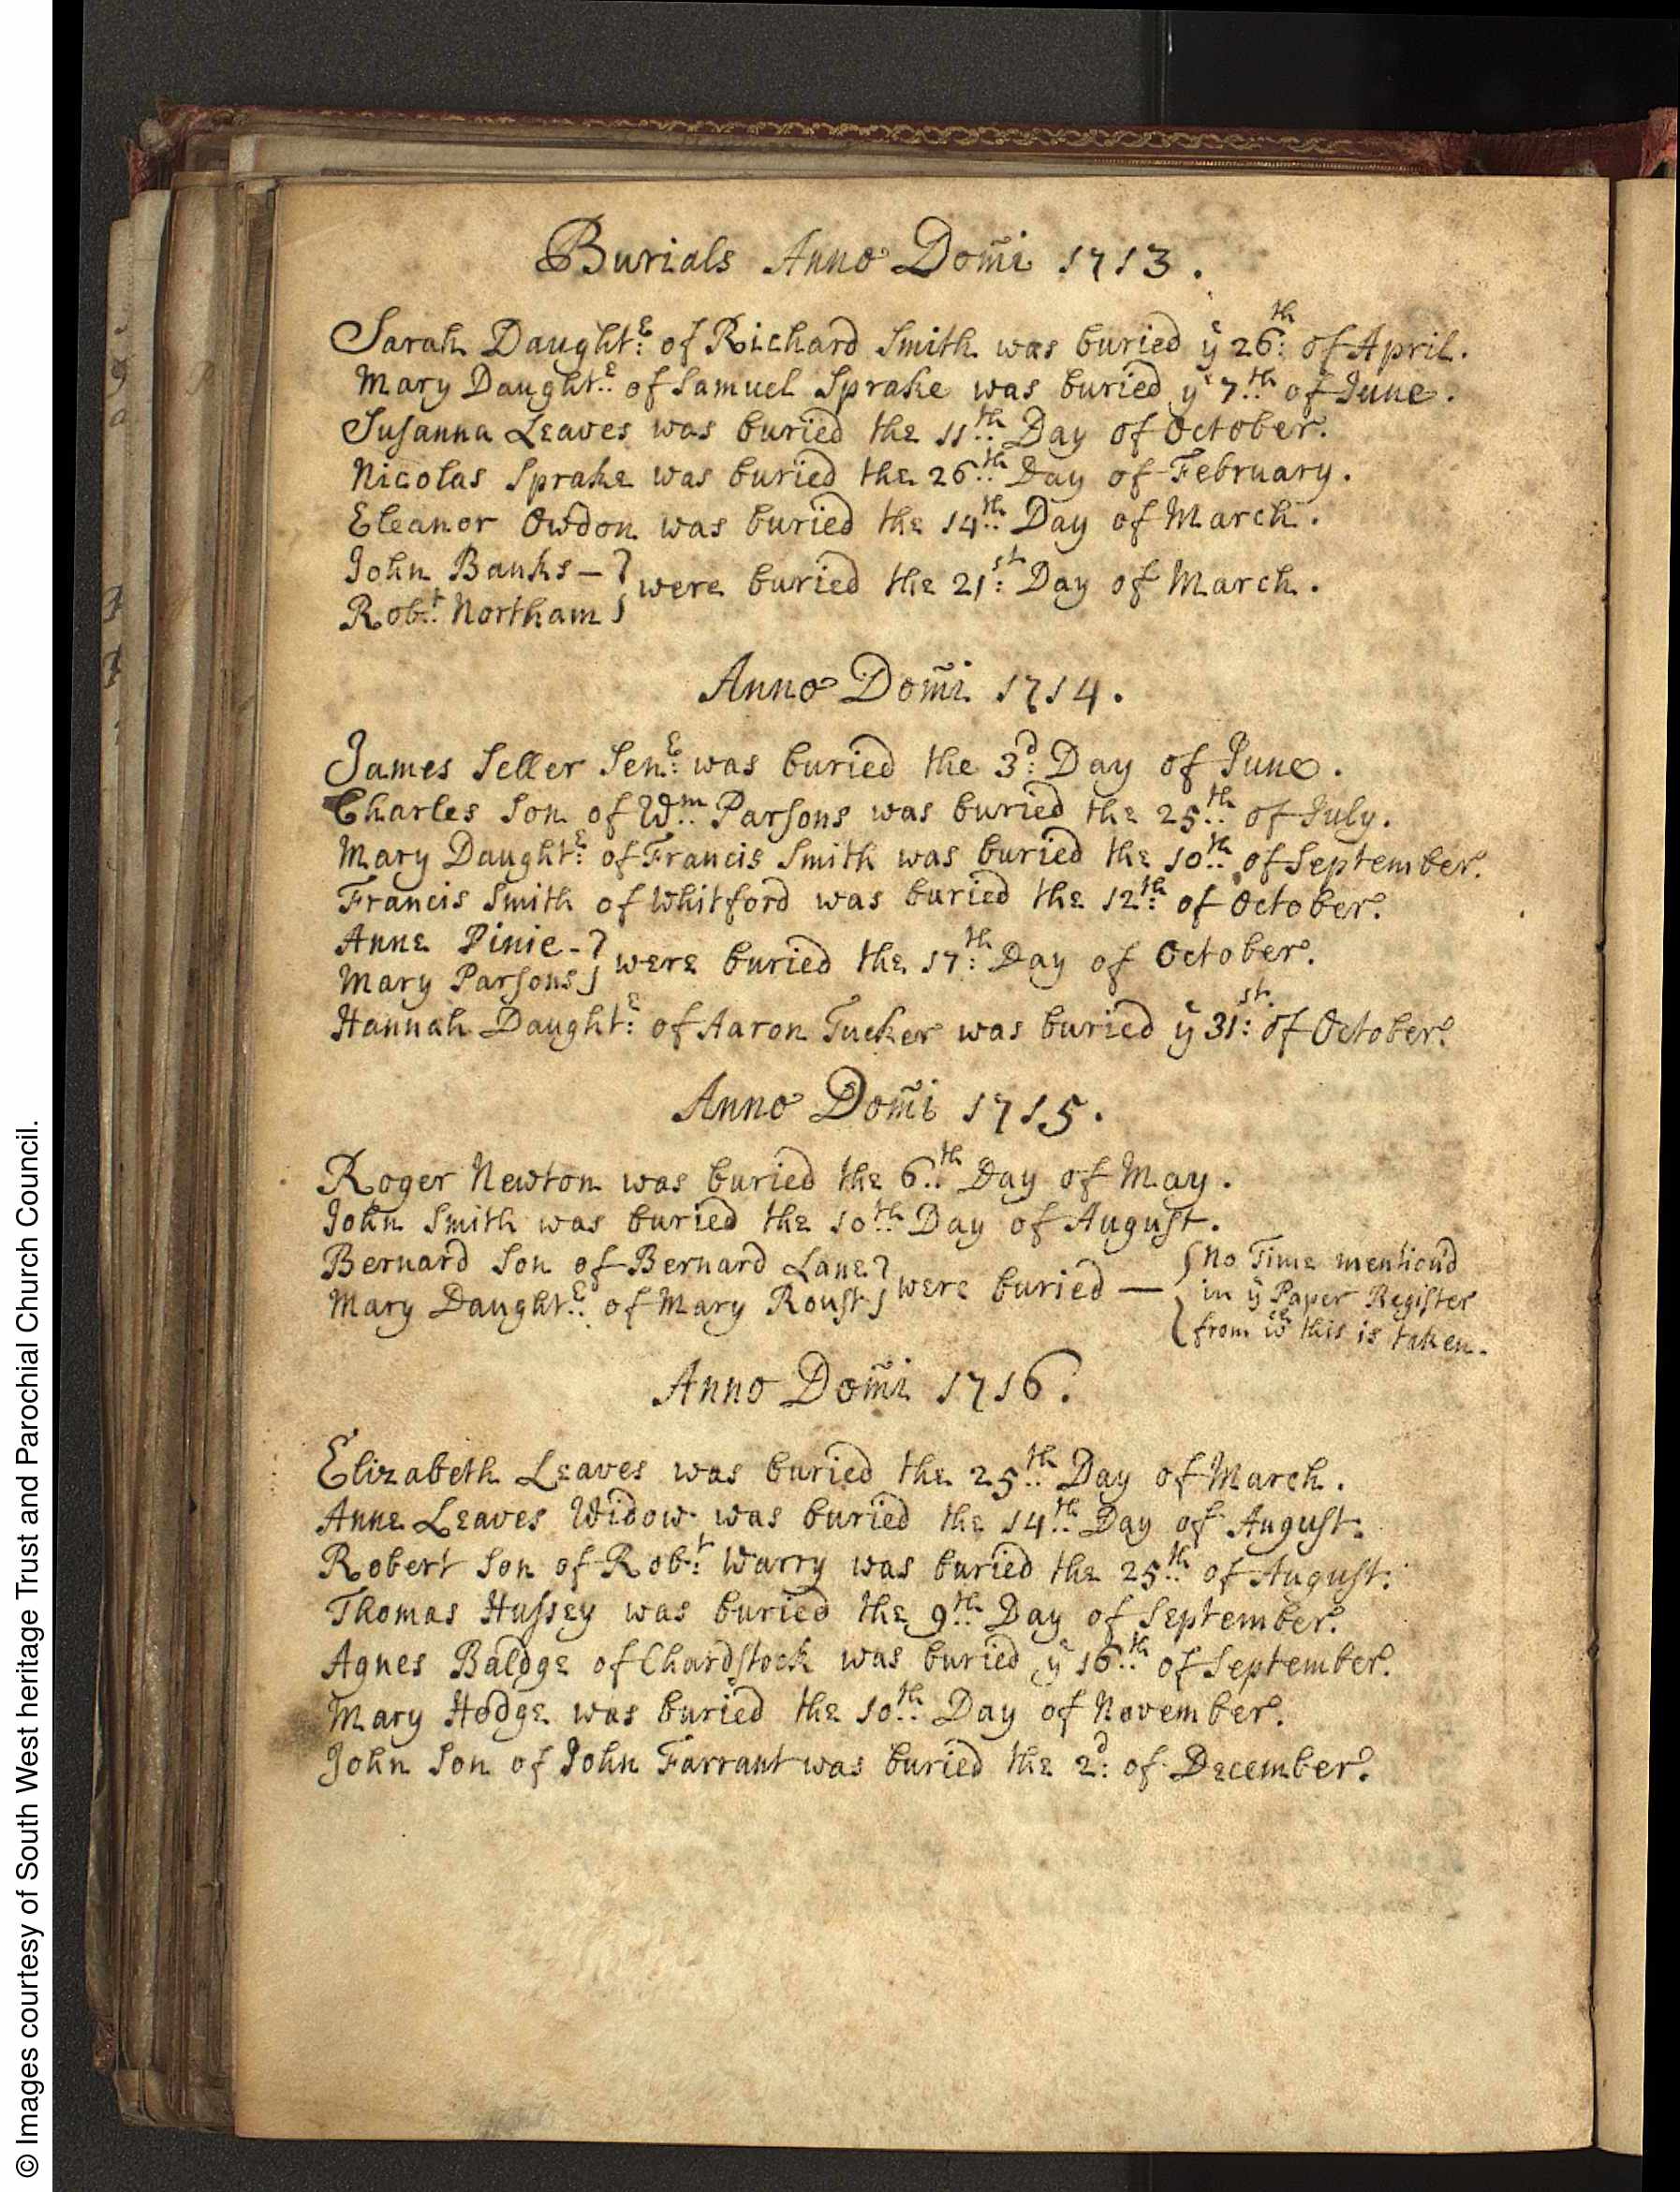 Burials Anno Dom̃i 1713.
Sarah Daughtr: of Richard Smith was buried ye 26th: of April.
Mary Daughtr: of Samuel Sprake was buried ye 7th: of June.
Suſanna Leaves was buried the 11th: Day of October.
Nicolas Sprake was buried the 26th: Day of February.
Eleanor Owdon was buried the 14th: Day of March.
John Banks – } were buried the 21st: Day of March.
Robt: Northam }
Anno Dom̃i 1714.
James Seller Senr: was buried the 3d: Day of June.
Charles Son of Wm: Parſons was buried the 25th: of July.
Mary Daughtr: of Francis Smith was buried the 10th: of September.
Francis Smith of Whitford was buried the 12th: of October.
Anne Pinie - } were buried the 17th: Day of October.
Mary Parſons }
Hannah Daughtr: of Aaron Tucker was buried ye 31st: of October.
Anno Dom̃i 1715.
Roger Newton was buried the 6th: Day of May.
John Smith was buried the 10th: Day of Auguſt.
Bernard Son of Bernard Lane } were buried — { No Time mention'd
Mary Daughtr: of Mary Rouſt } in ye Paper Regiſter
from wch this is taken.
Anno Dom̃i 1716.
Elizabeth Leaves was buried the 25th: Day of March.
Anne Leaves Widow was buried the 14th: Day of Auguſt.
Robert Son of Robt: Warry was buried the 25th: of Auguſt:
Thomas Huſsey was buried the 9th: Day of September.
Agnes Baldge of Chardſtock was buried ye 16th: of September.
Mary Hodge was buried the 10th: Day of November.
John Son of John Farrant was buried the 2d: of December.
© Images courtesy of South West heritage Trust and Parochial Church Council.